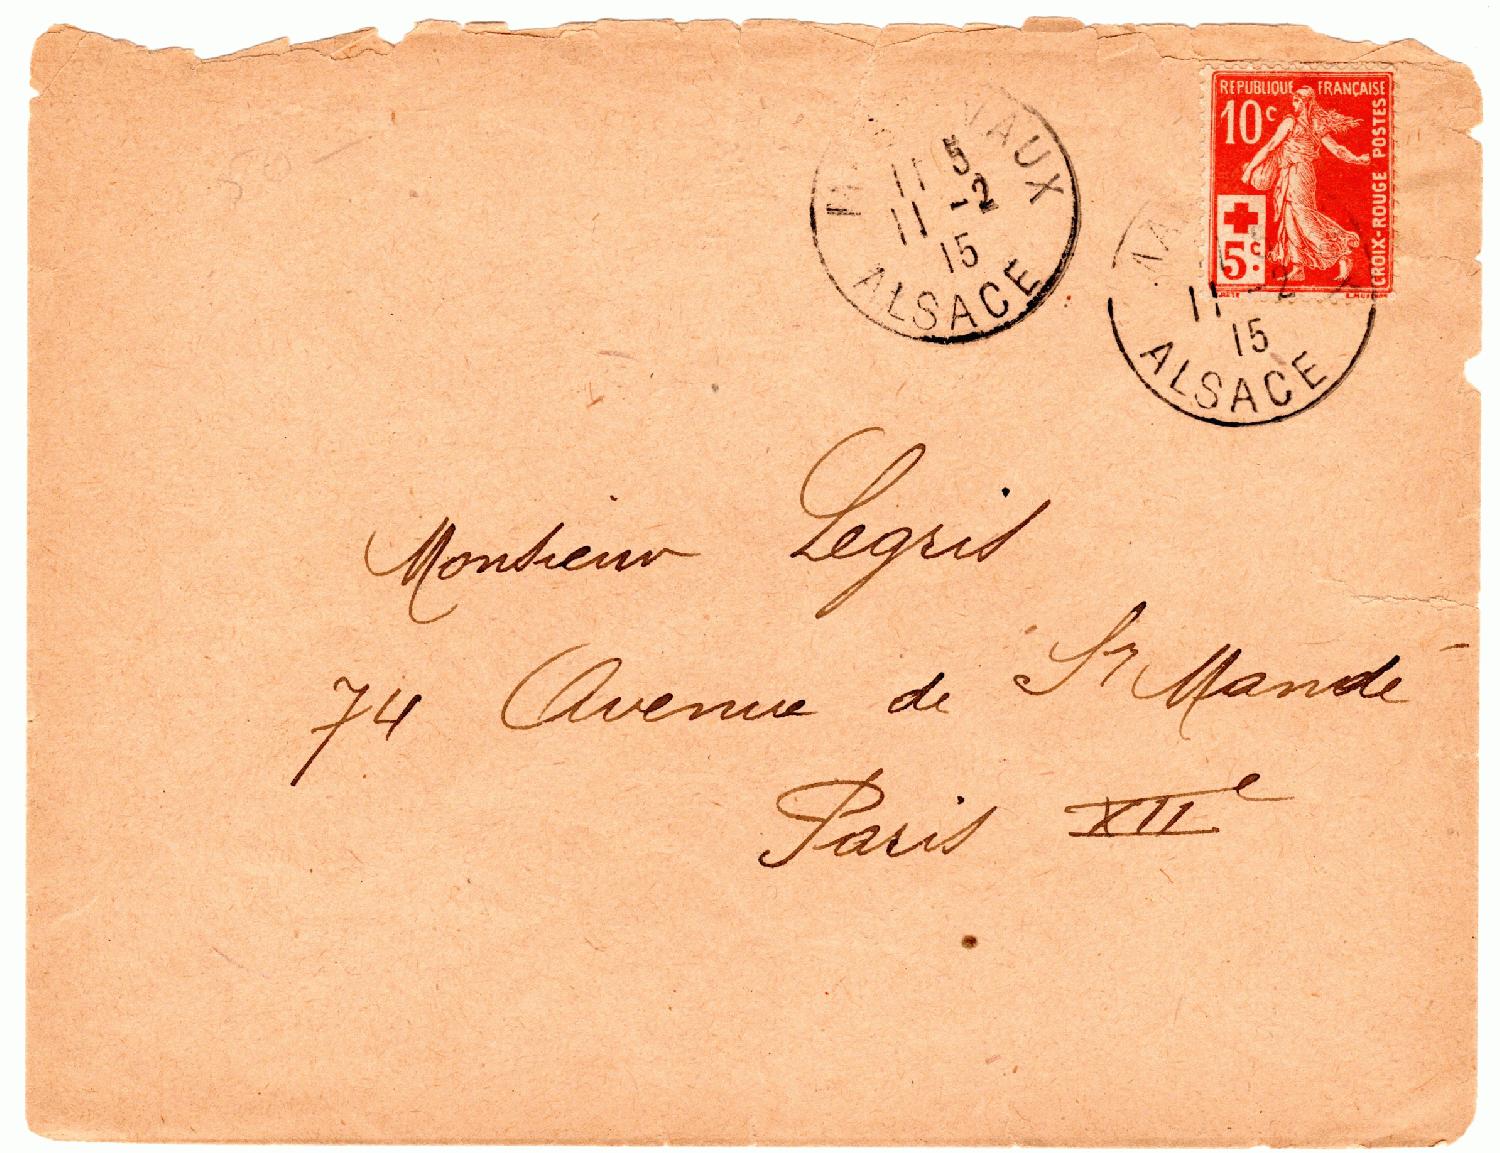 RÉPUBLIQUE FRANÇAISE
10c
POSTES
CROIX-ROUGE
5c.
11 5
11 -2
15
ALSACE
11 -2
15
ALSACE
Monsieur Legris
74 Avenue de St Mandé
Paris XIIe